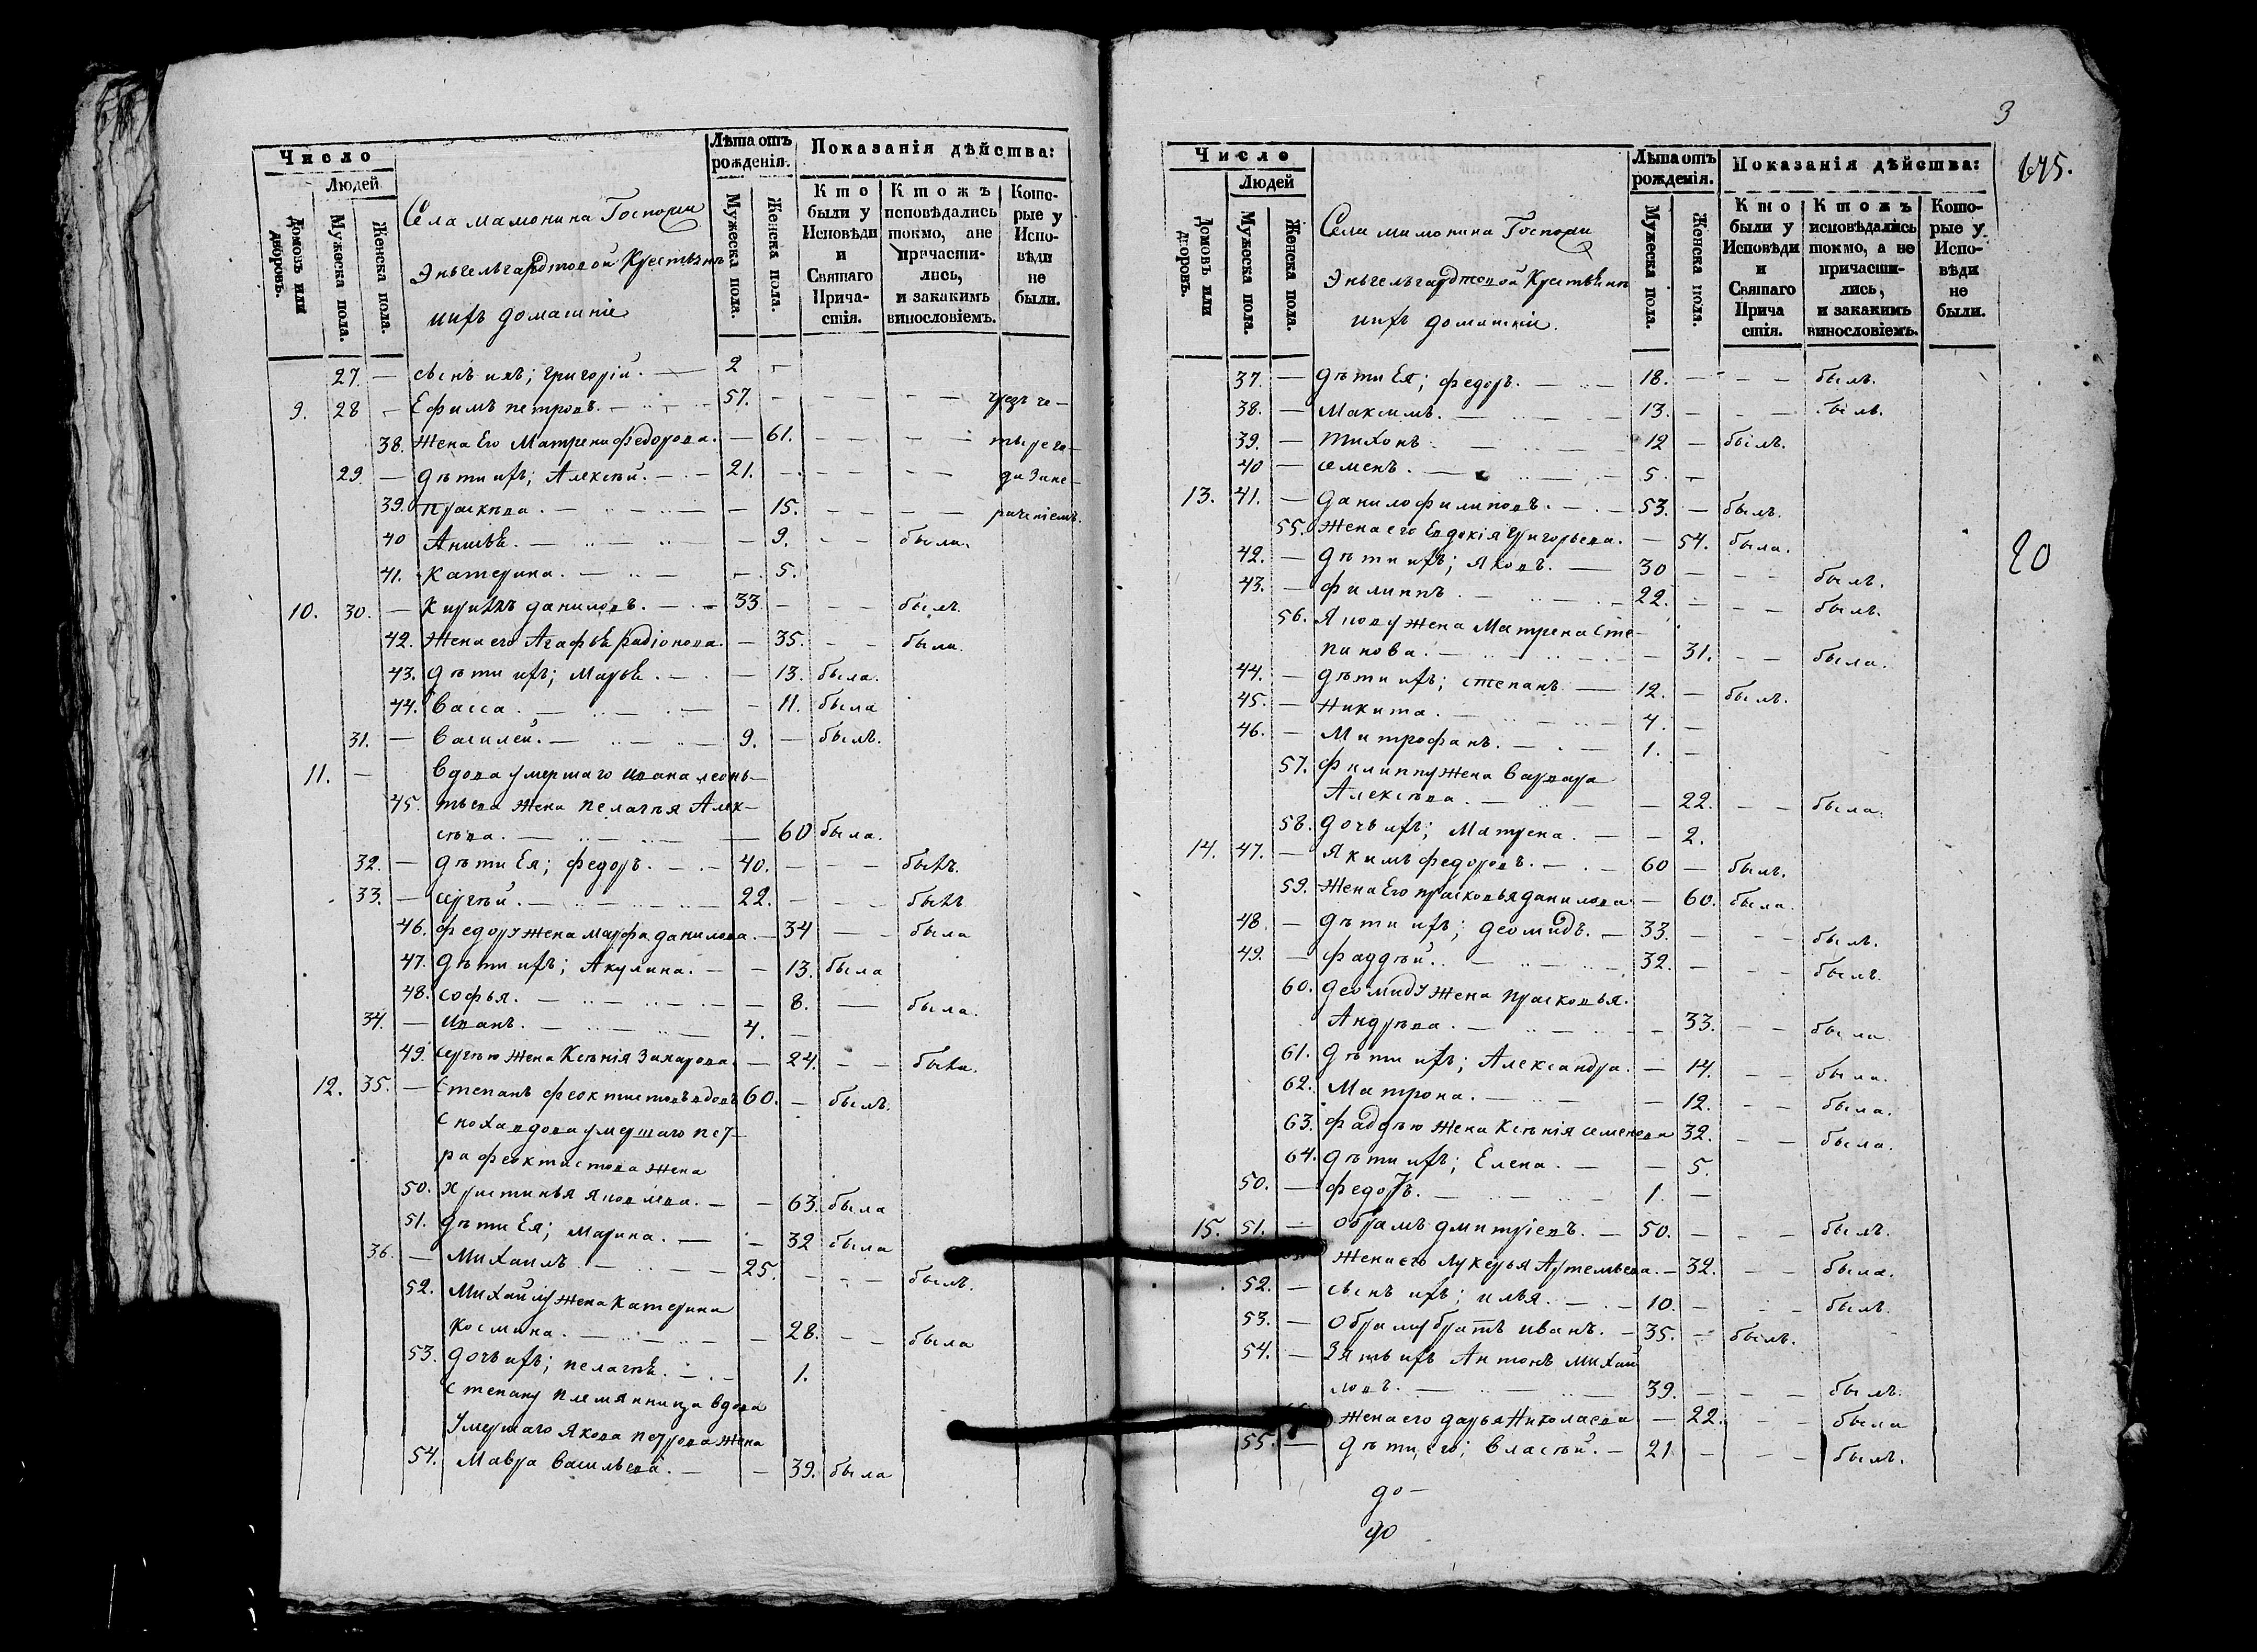 Число
Людей
Домовъ или дворовъ.
Мужеска пола.
Женска пола.
Села мамонина Госпожи
Энъгельгардтовой Крестьянъ
ихъ домашніе
Лѣта отъ рожденія.
Мужеска пола.
Женска пола.
Показанія дѣйства:
Кто были у Исповѣди и Святаго Причастія.
Ктожъ исповѣдались токмо, а не причастились, и закакимъ винословіемъ.
Которые у Исповѣди не были.
27. — сынъ ихъ; григорій. — 2 —
9. 28 — Ефимъ петровъ. — 57. — — — — — чрезъ че—
38. Жена Его Матрена федорова. — 61. — — — — тыре го—
29. — дѣти ихъ; Алексѣй. — 21. — — — — — да Зане—
39. прасковa. — 15. — — — — раченіемъ.
40 Анисья. — 9. — — была.
41. катерина. — 5.
10. 30. — кирилъ даниловъ. — 33 — — — былъ.
42. Жена его Агафья радіонова. — 35. — — была.
43. дѣти ихъ; Марья. — 13. была.
44. васса. — 11. была
31. — василей. — 9. — былъ.
11. — вдова умершаго ивана леонь—
45. тьева жена пелагья Алек—
сѣва. — 60 была.
32. — дѣти Ея; федоръ. — 40. — — — былъ.
33. — сергѣй. — 22. — — — былъ
46. федору жена марфа данилова. — 34 — — была
47. дѣти ихъ; Акулина. — 13. была
48. софья. — 8. — была.
34. — иванъ. — 4. —
49. сергѣю жена Ксѣнія Захарова. — 24. — — была.
12. 35. — Степанъ феоктистовъ вдовъ 60. — былъ.
Сноха вдова умершаго пет—
ра феоктистова жена
50. христинья яковлева. — 63. была
51. дѣти Ея; марина. — 32 была
36. — Михаилъ — 25. — — — былъ.
52. Михайлу жена катерина
космина. — 28. — — была
53. дочь ихъ; пелагѣя. — 1.
Степану племянница вдова
умершаго якова петрова жена
54. Мавра васильева. — 39. была
3
20
Число
Людей
Домовъ или дворовъ.
Мужеска пола.
Женска пола.
Села мамонина Госпожи
Энъгельгардтовой Крестьянъ
ихъ домашніе.
Лѣта отъ рожденія.
Мужеска пола.
Женска пола.
Показанія дѣйства:
Кто были у Исповѣди и Святаго Причастія.
Ктожъ исповѣдались токмо, а не причастились, и закакимъ винословіемъ.
Которые у Исповѣди не были.
37. — дѣти Ея; федоръ. — 18. — — — былъ.
38. — Максимъ. — 13. — — — былъ.
39. — тихонъ — 12 — былъ.
40 — семенъ. — 5. —
13. 41. — данило филиповъ. — 53. — былъ.
55. Жена его Евдокія григорьева. — 54. была.
42. — дѣти ихъ; яковъ. — 30 — — — былъ.
43. — филиппъ. — 22. — — — былъ.
56. якову жена Матрена сте—
панова. — 31. — — была.
44. — дѣти ихъ; степанъ — 12. — былъ.
45. — Никита. — 4. —
46. — Митрофанъ. — 1. —
57. филиппу жена варвара
Алексѣва. — 22. — — была.
58. дочь ихъ; Матрена. — 2.
14. 47. — якимъ федоровъ. — 60 — былъ.
59. Жена Его прасковья данилова — 60. была.
48. — дѣти ихъ; деомидъ. — 33. — — — былъ.
49. — фаддѣй. — 32. — — — былъ.
60. деомиду жена прасковья.
Андрѣва. — 33. — — была
61. дѣти ихъ; Александра. — 14. — — была.
62. Матрона. — 12. — — была.
63. фаддѣю жена Ксѣнія семенова 32. — — была.
64. дѣти ихъ; Елена. — 5.
50. — федоръ. — 1. —
15. 51. — обрамъ дмитріевъ. — 50. — — — былъ.
жена его лукерья Артемьева. — 32. — — была.
52. — сынъ ихъ; илья. — 10. — — — былъ.
53. — обраму братъ иванъ. — 35. — былъ.
54. — Зять ихъ Антонъ михай
ловъ. — 39. — — — былъ.
жена его дарья Николаева — 22. — — была
55. — дѣти его; власѣй. — 21 — — — былъ.
до—